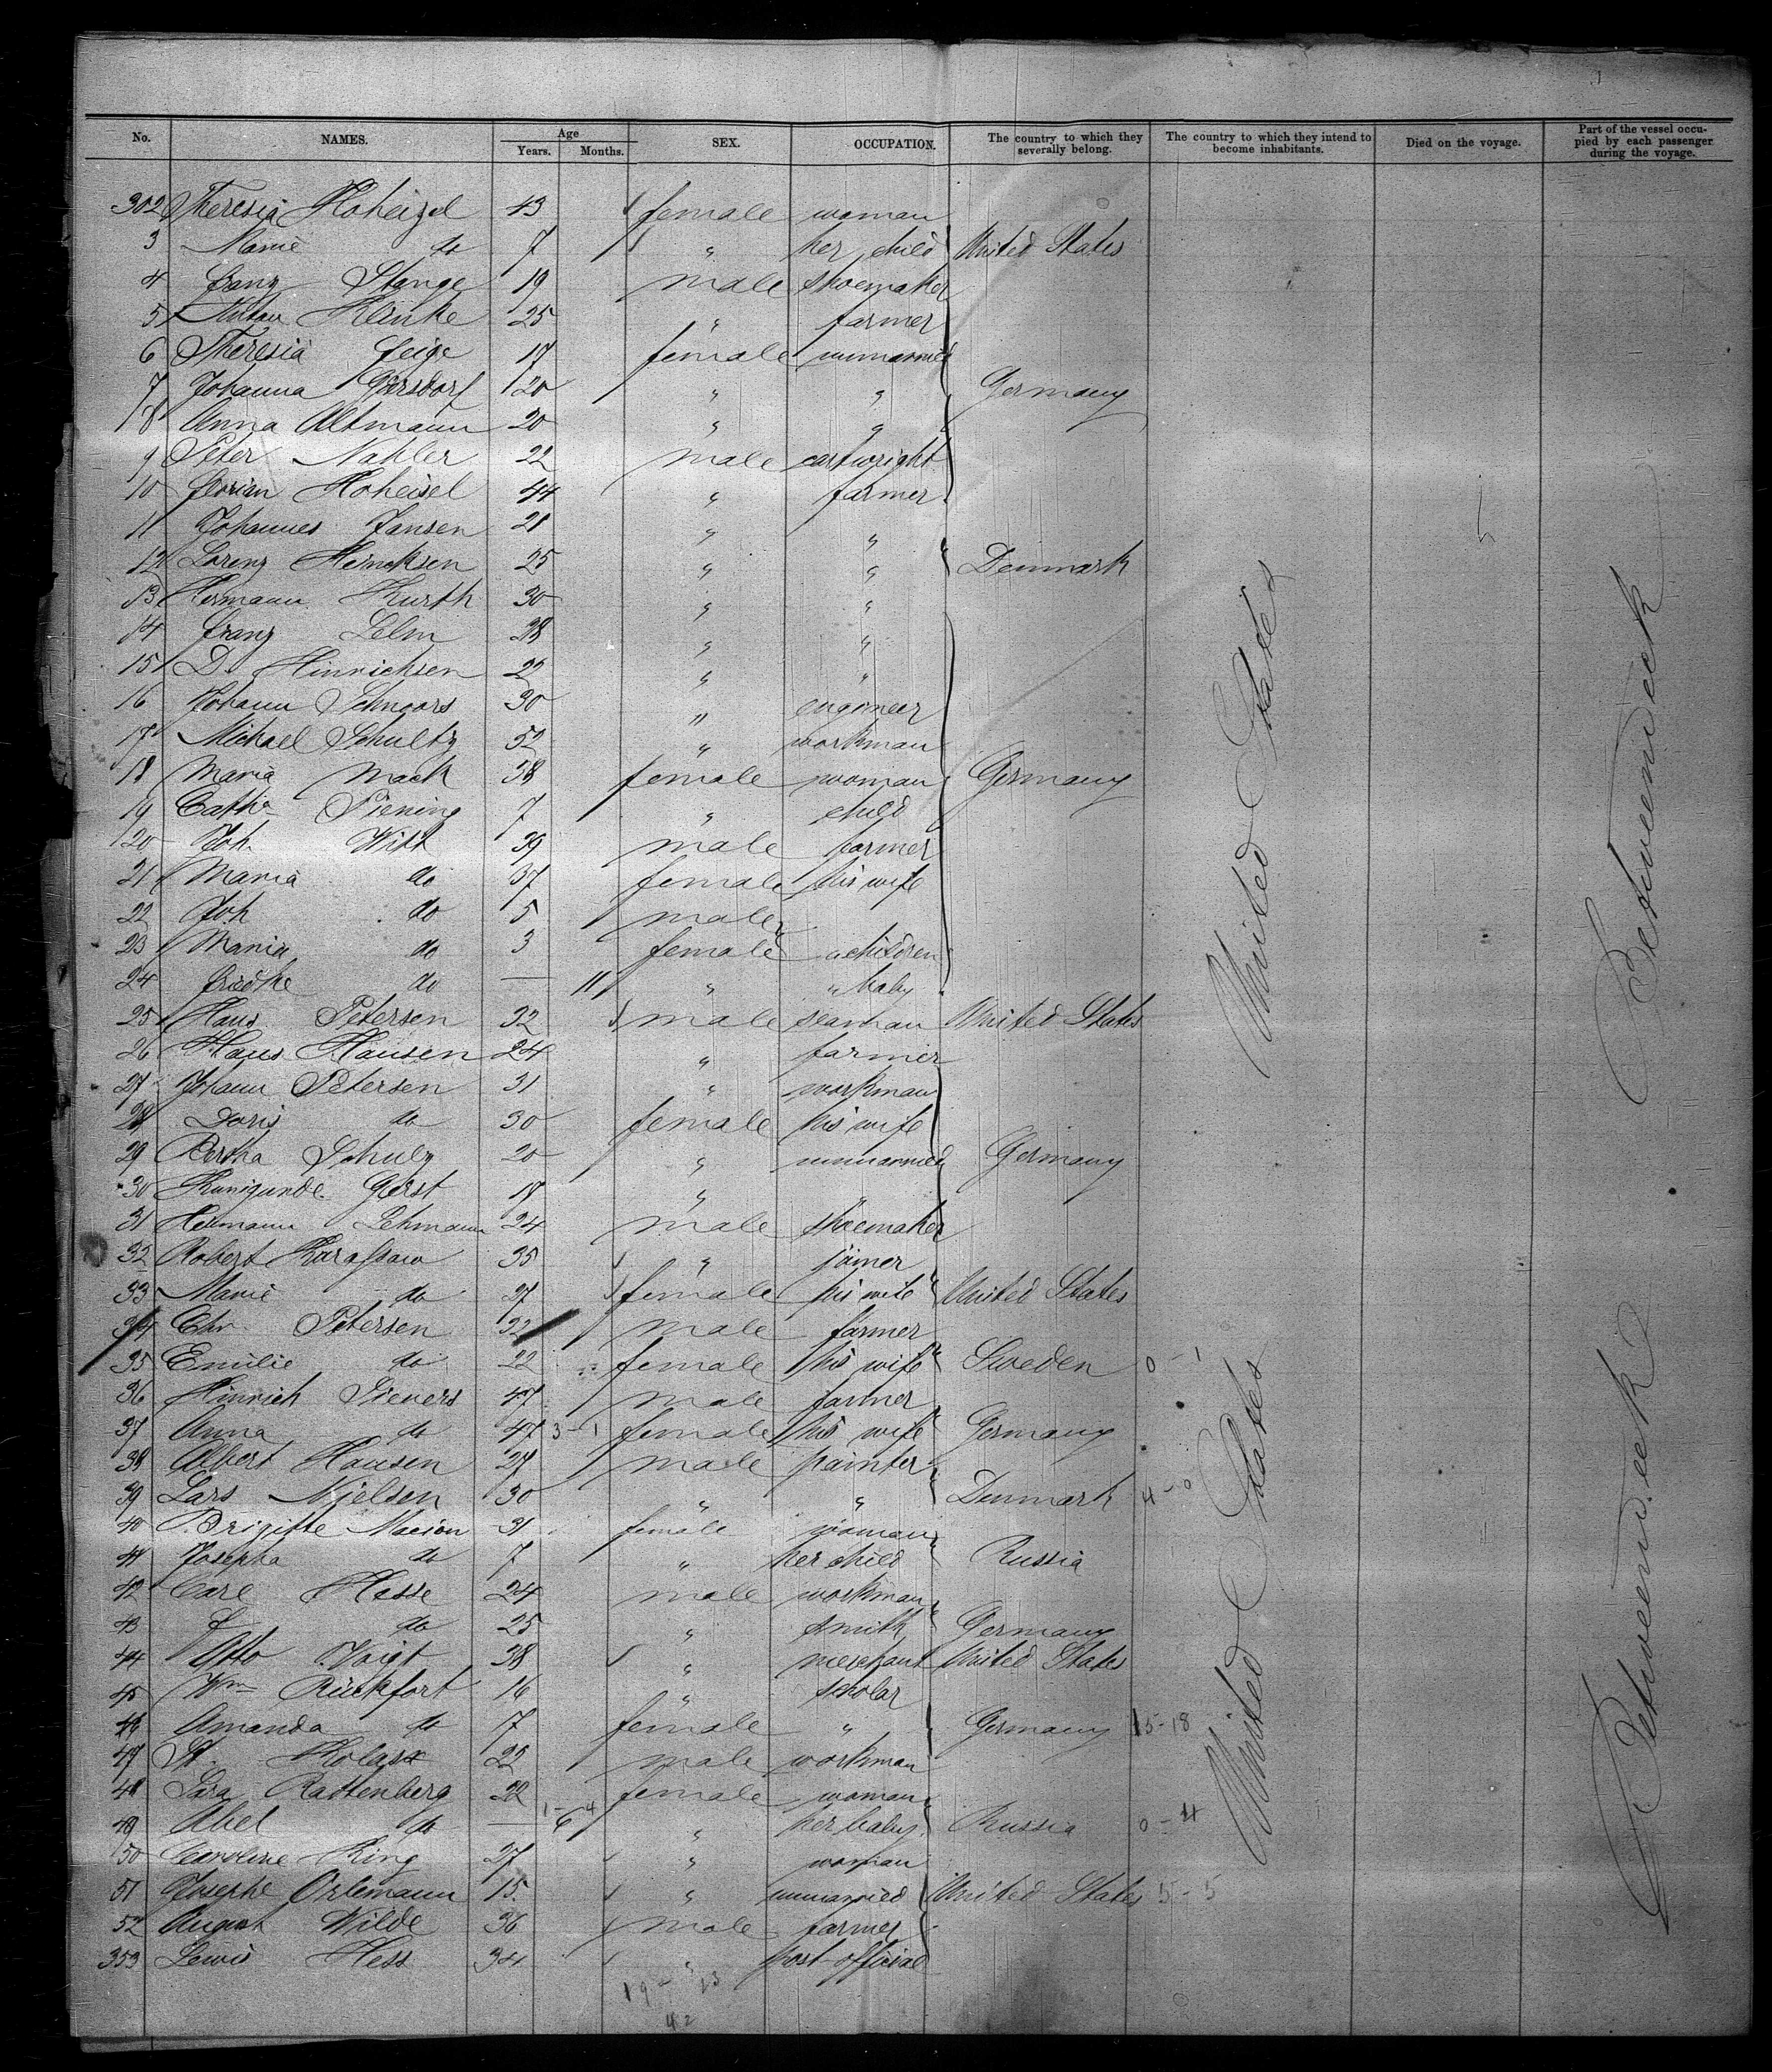 No. NAMES. Age Years. Months. SEX. OCCUPATION. The country to which they severally belong. The country to which they intend to become inhabitants. Died on the voyage. Part of the vessel occupied by each passenger during the voyage.
302 Theresia Hoheizel 43 female woman
3 Marie do 7 " her child United States
4 Franz Stange 19 male shoemaker
5 Anton Heinke 25 " farmer
6 Theresia Feige 17 female unmarried
7 Johanna Girsdorf 20 " " Germany
8 Anna Altmann 20 " "
9 Peter Nahler 22 male cartwright
10 Florian Hoheisel 44 " farmer
11 Johannes Jansen 21 " "
12 Lorenz Hinrichsen 25 " " Denmark
13 Hermann Kurth 30 " "
14 Franz Selm 28 " "
15 D. Hinrichsen 22 " "
16 Johann Schnoors 30 " engineer
17 Michael Schultz 52 " workman
18 Maria Mack 38 female woman Germany
19 Catha Piening 7 " child
20 Joh. Witt 39 male farmer
21 Maria do 37 female his wife
22 Joh do 5 male
23 Maria do 3 female " children
24 Fredke do — 11 " " baby
25 Hans Petersen 32 male seaman United States
26 Hans Hansen 24 " farmer
27 Johann Petersen 31 " workman
28 Doris do 30 female his wife
29 Bertha Schulz 20 " unmarried Germany
30 Kunigunde Gerst 18 " "
31 Hermann Lehmann 24 male shoemaker
32 Robert Karassow 35 " joiner
33 Marie do 27 female his wife United States
34 Chr. Petersen 32 male farmer
35 Emilie do 22 female his wife Sweden 0 - 1
36 Hinrich Sievers 47 male farmer
37 Anna do 47 3-1 female his wife Germany
38 Albert Hansen 27 male painter
39 Lars Nielsen 30 " " Denmark 4-0
40 Brigitte Macion 31 female woman
41 Josepha do 7 " her child Russia
42 Carl Hesse 24 male workman
43 F do 25 " smith Germany
44 Otto Voigt 38 " merchant United States
45 Wm Rückfort 16 " scholar
46 Amanda do 7 female " Germany 15-18
47 St. Kolarz 22 male workman
48 Sara Rattenberg 22 female woman
49 Abel do — 6 " her baby Russia 0-4
50 Caroline King 27 " woman
51 Josephe Orlemann 15 " unmarried United States 5-5
52 August Wilde 36 male farmer
353 Lewis Hess 34 " post-official
19 - 23
42
United States
Betweendeck
United States
Betweendeck